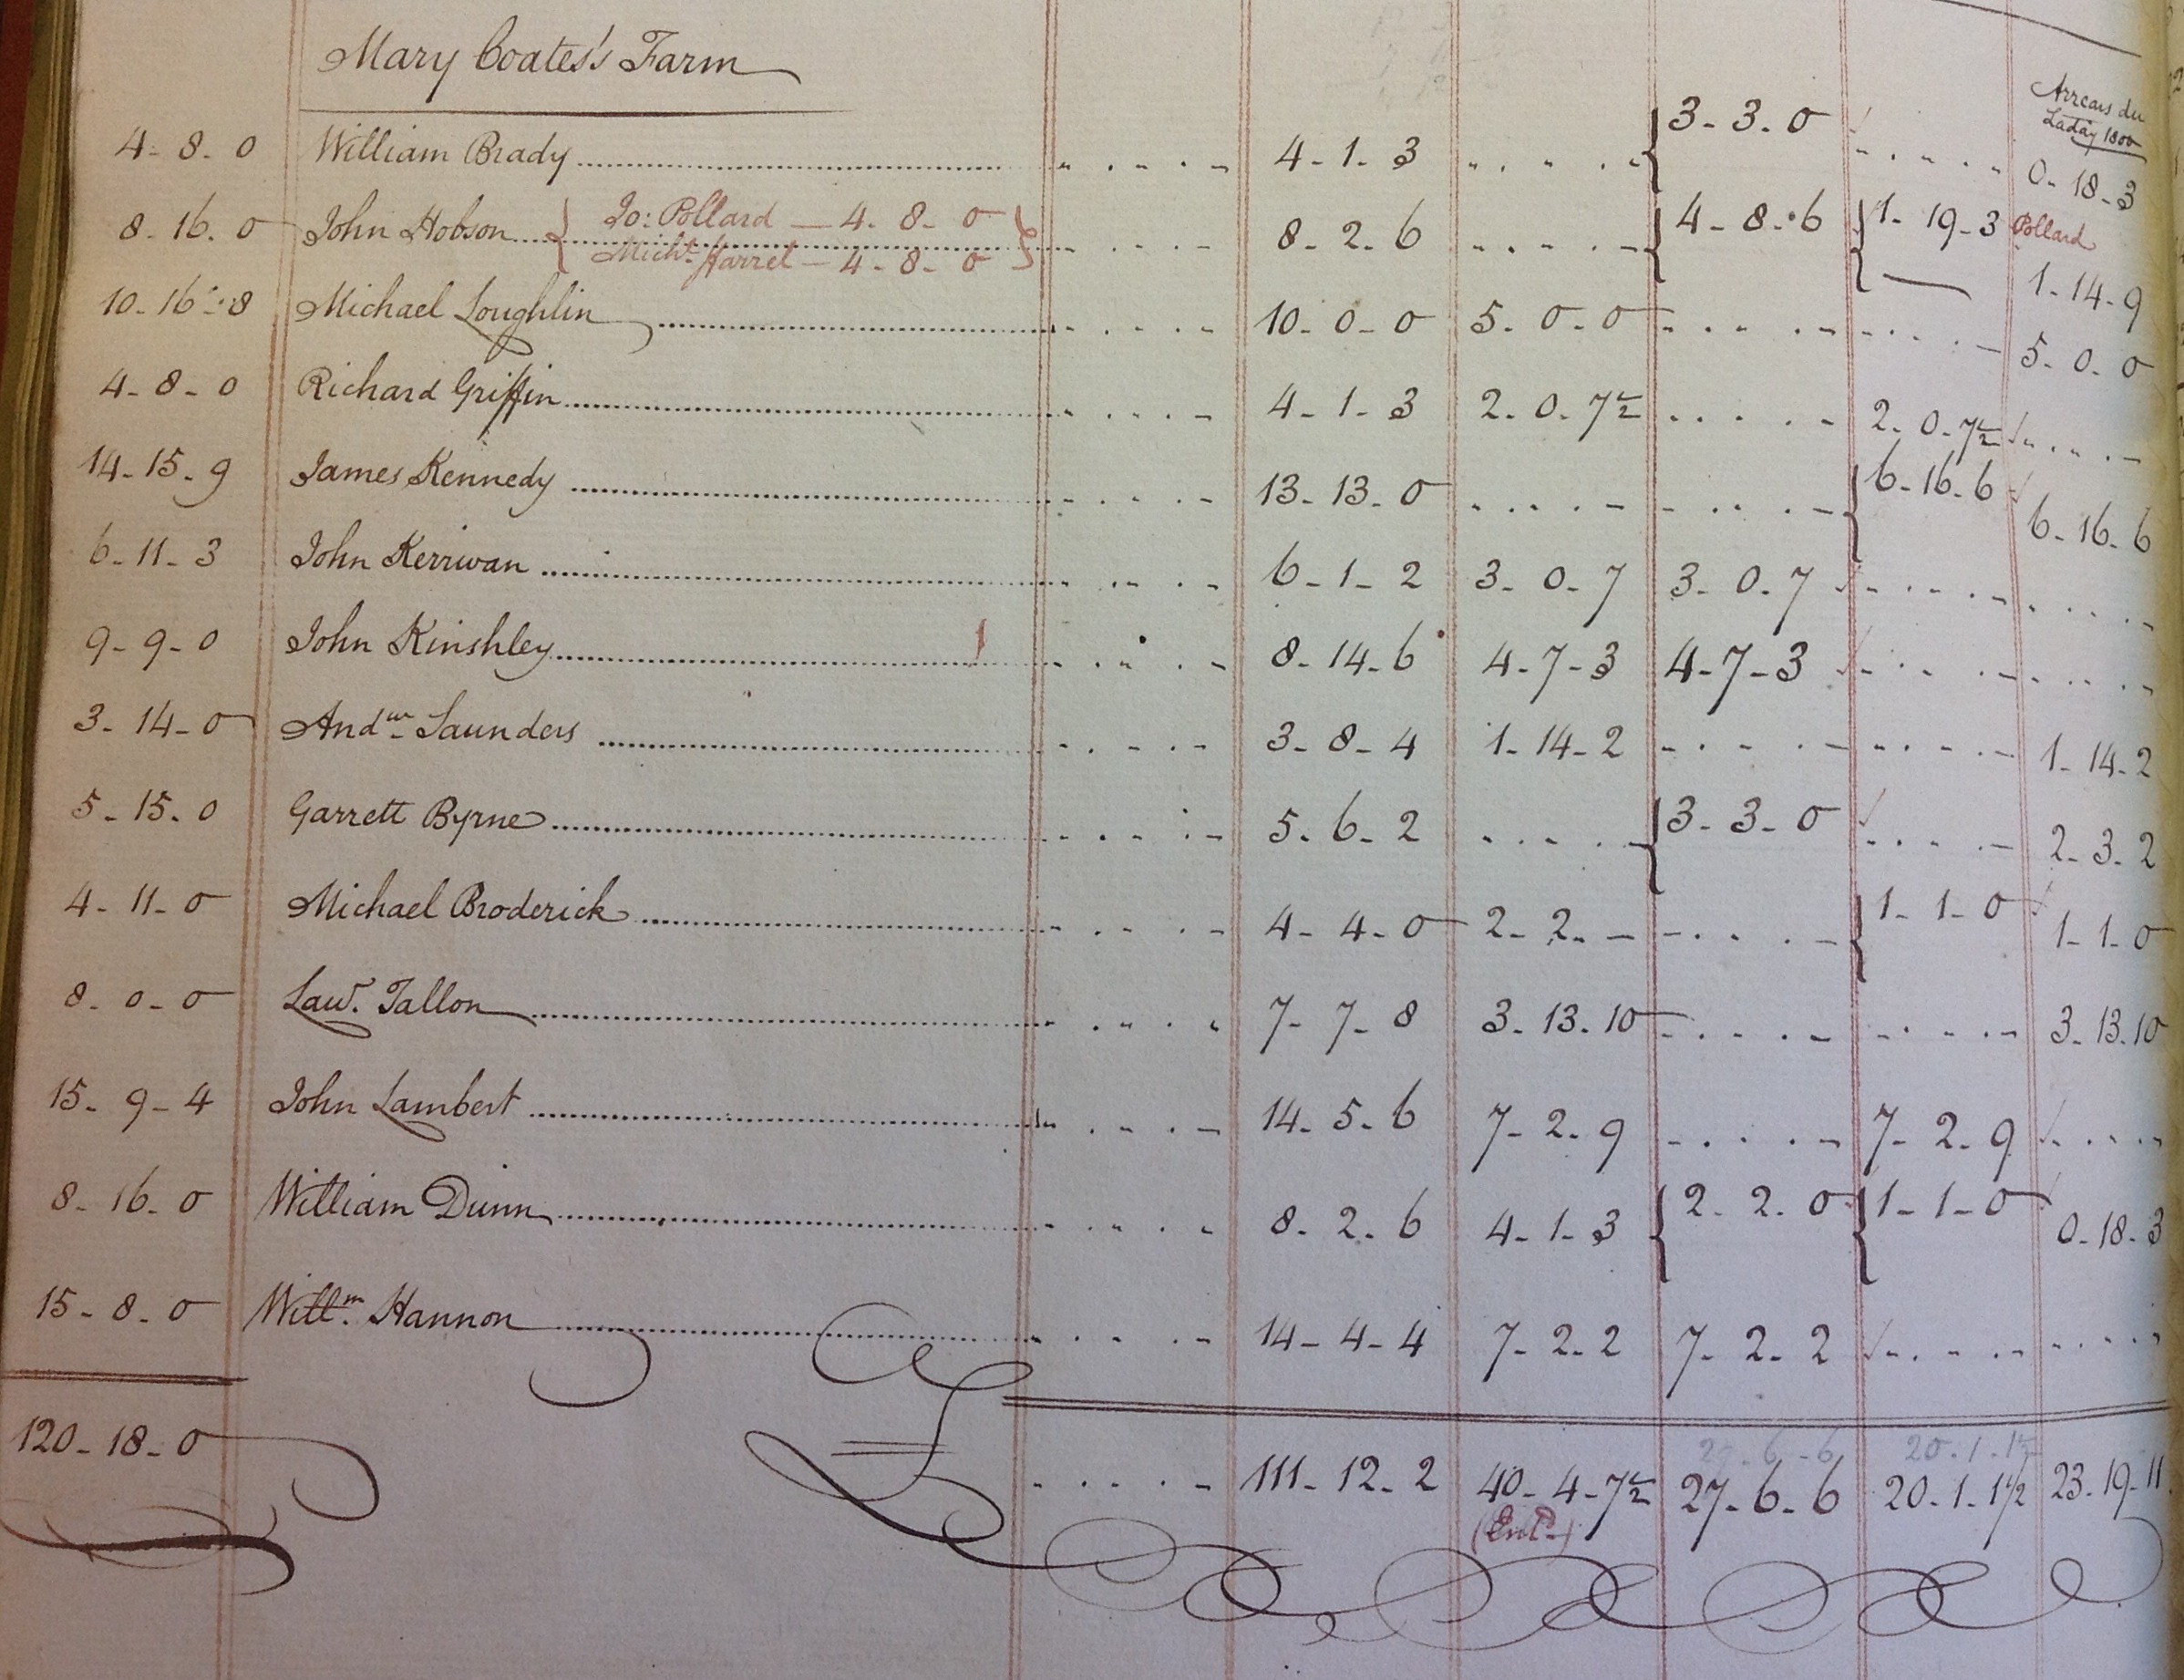 Mary Coates's Farm
Arrears du
Laday 1800
4-8-0 William Brady 4-1-3 3-3-0 0-18-3
8-16-0 John Hobson { Jo: Pollard — 4-8-0 } 8-2-6 4-8-6 1-19-3 Pollard
Michl. Farrel — 4-8-0 — 1-14-9
10-16-8 Michael Loughlin 10-0-0 5-0-0 5-0-0
4-8-0 Richard Griffin 4-1-3 2-0-7½ 2-0-7½
14-15-9 James Kennedy 13-13-0 6-16-6 6-16-6
6-11-3 John Kerrivan 6-1-2 3-0-7 3-0-7
9-9-0 John Kinshley 8-14-6 4-7-3 4-7-3
3-14-0 Andw. Saunders 3-8-4 1-14-2 1-14-2
5-15-0 Garrett Byrne 5-6-2 3-3-0 2-3-2
4-11-0 Michael Broderick 4-4-0 2-2-- 1-1-0 1-1-0
8-0-0 Lawr. Tallon 7-7-8 3-13-10 3-13-10
15-9-4 John Lambert 14-5-6 7-2-9 7-2-9
8-16-0 William Dunn 8-2-6 4-1-3 2-2-0 1-1-0 0-18-3
15-8-0 Willm. Hannon 14-4-4 7-2-2 7-2-2
27-6-6 20-1-1½
120-18-0 111-12-2 40-4-7½ 27-6-6 20-1-1½ 23-19-11
(Entd.)